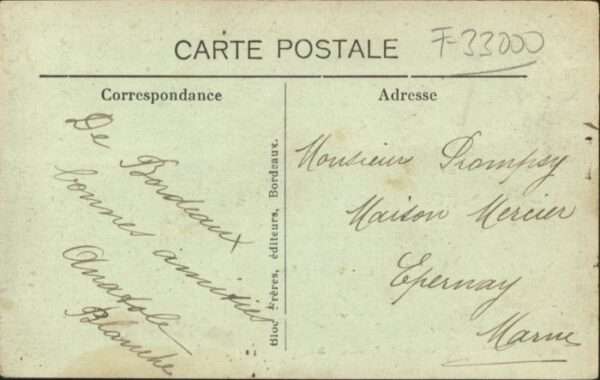 CARTE POSTALE
F-33000
Correspondance
Adresse
De Bordeaux
bonnes amitiés
Anatole
Blanche
Bloc Frères, éditeurs, Bordeaux.
Monsieur Prompsy
Maison Mercier
Epernay
Marne